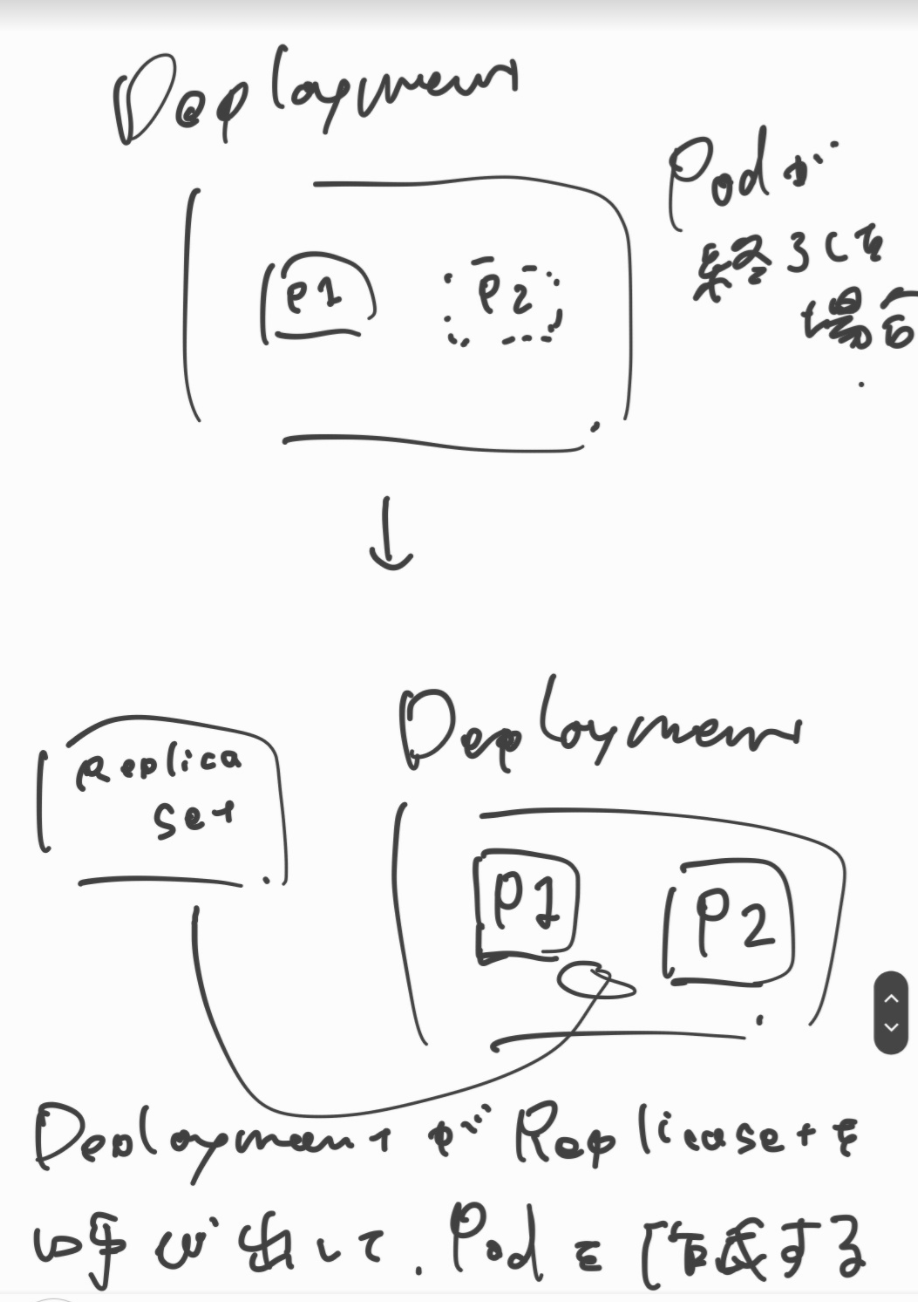 Deployment
Podが
終了した
場合
P1
P2
Deployment
Replica
Set
P1
P2
DeploymentがReplicaSetを
呼び出して、Podを作成する